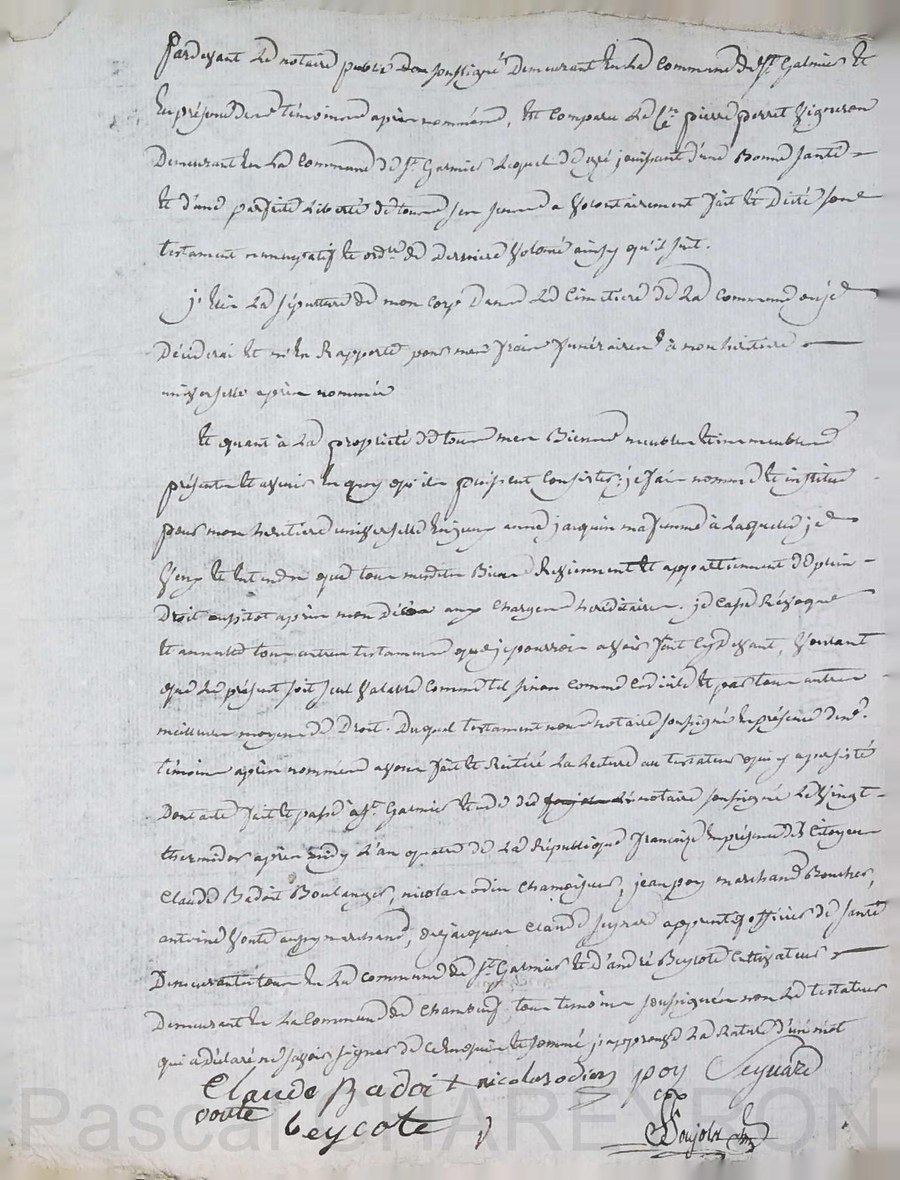 Pardevant Le notaire public soussigné Demeurant En La Commune de St Galmier Et
En présence des témoins après nommés, Est comparu Le Cen pierre perret vigneron
Demeurant En La Commune de St Garmier Lequel de gré jouissant d'une Bonne santé
Et d'une parfaite Liberté de tous ses sens a volontairement fait Et Dicté son
testament nuncupatif Et ordre de Derniere volonté ainsy qu'il suit.
j'Elis La sépulture de mon corps Dans Le Cimetiere de La commune où je
Décéderai Et m'En Rapporte pour mes frais funéraires à mon héritiere
universelle après nommée
Et quant à La propriété de tous mes Biens meubles Et immeubles
présents Et avenir En quoy qu'ils puissent Consister, je fais nomme Et institue
pour mon heritiere universelle anne jacquin ma femme à Laquelle je
veux Et Entends que tous mesdits Biens Reviennent Et appartiennent De plein
Droit aussitot après mon décès aux Charges héréditaires. je Casse Révoque
Et annulle tous autres testaments que je pourrois avoir fait Cy devant, voulant
que Le présent soit seul valable Comme tel sinon comme codicile Et par tous autres
meilleurs moyens de Droit. Duquel testament nous notaire soussigné En présence des
témoins après nommés avons fait Et Réitéré La Lecture au testateur qui y a persisté
Dont acte fait Et passé à St Garmier Etude de notaire soussigné Le vingt
thermidor après midy L'an quatre de La République francaise En présence des Citoyens
Claude Badoit Boulanger, nicolas odin Chamoiseur, jean poy marchand Boucher,
antoine voute aussy marchand, De jacques Claude seynard apprentif officier de santé
Demeurants tous En La commune de St Garmier Et d'andré Beycote Cultivateur
Demeurant En La Commune de Chamboeuf, tous témoins soussignés non Le testateur
qui a déclaré ne savoir signer de ce Enquis Et sommé, j'approuve La Rature d'un mot
Claude Badoit nicolas odin poy Seynard
voute beycote
Pascal CHAREYRON